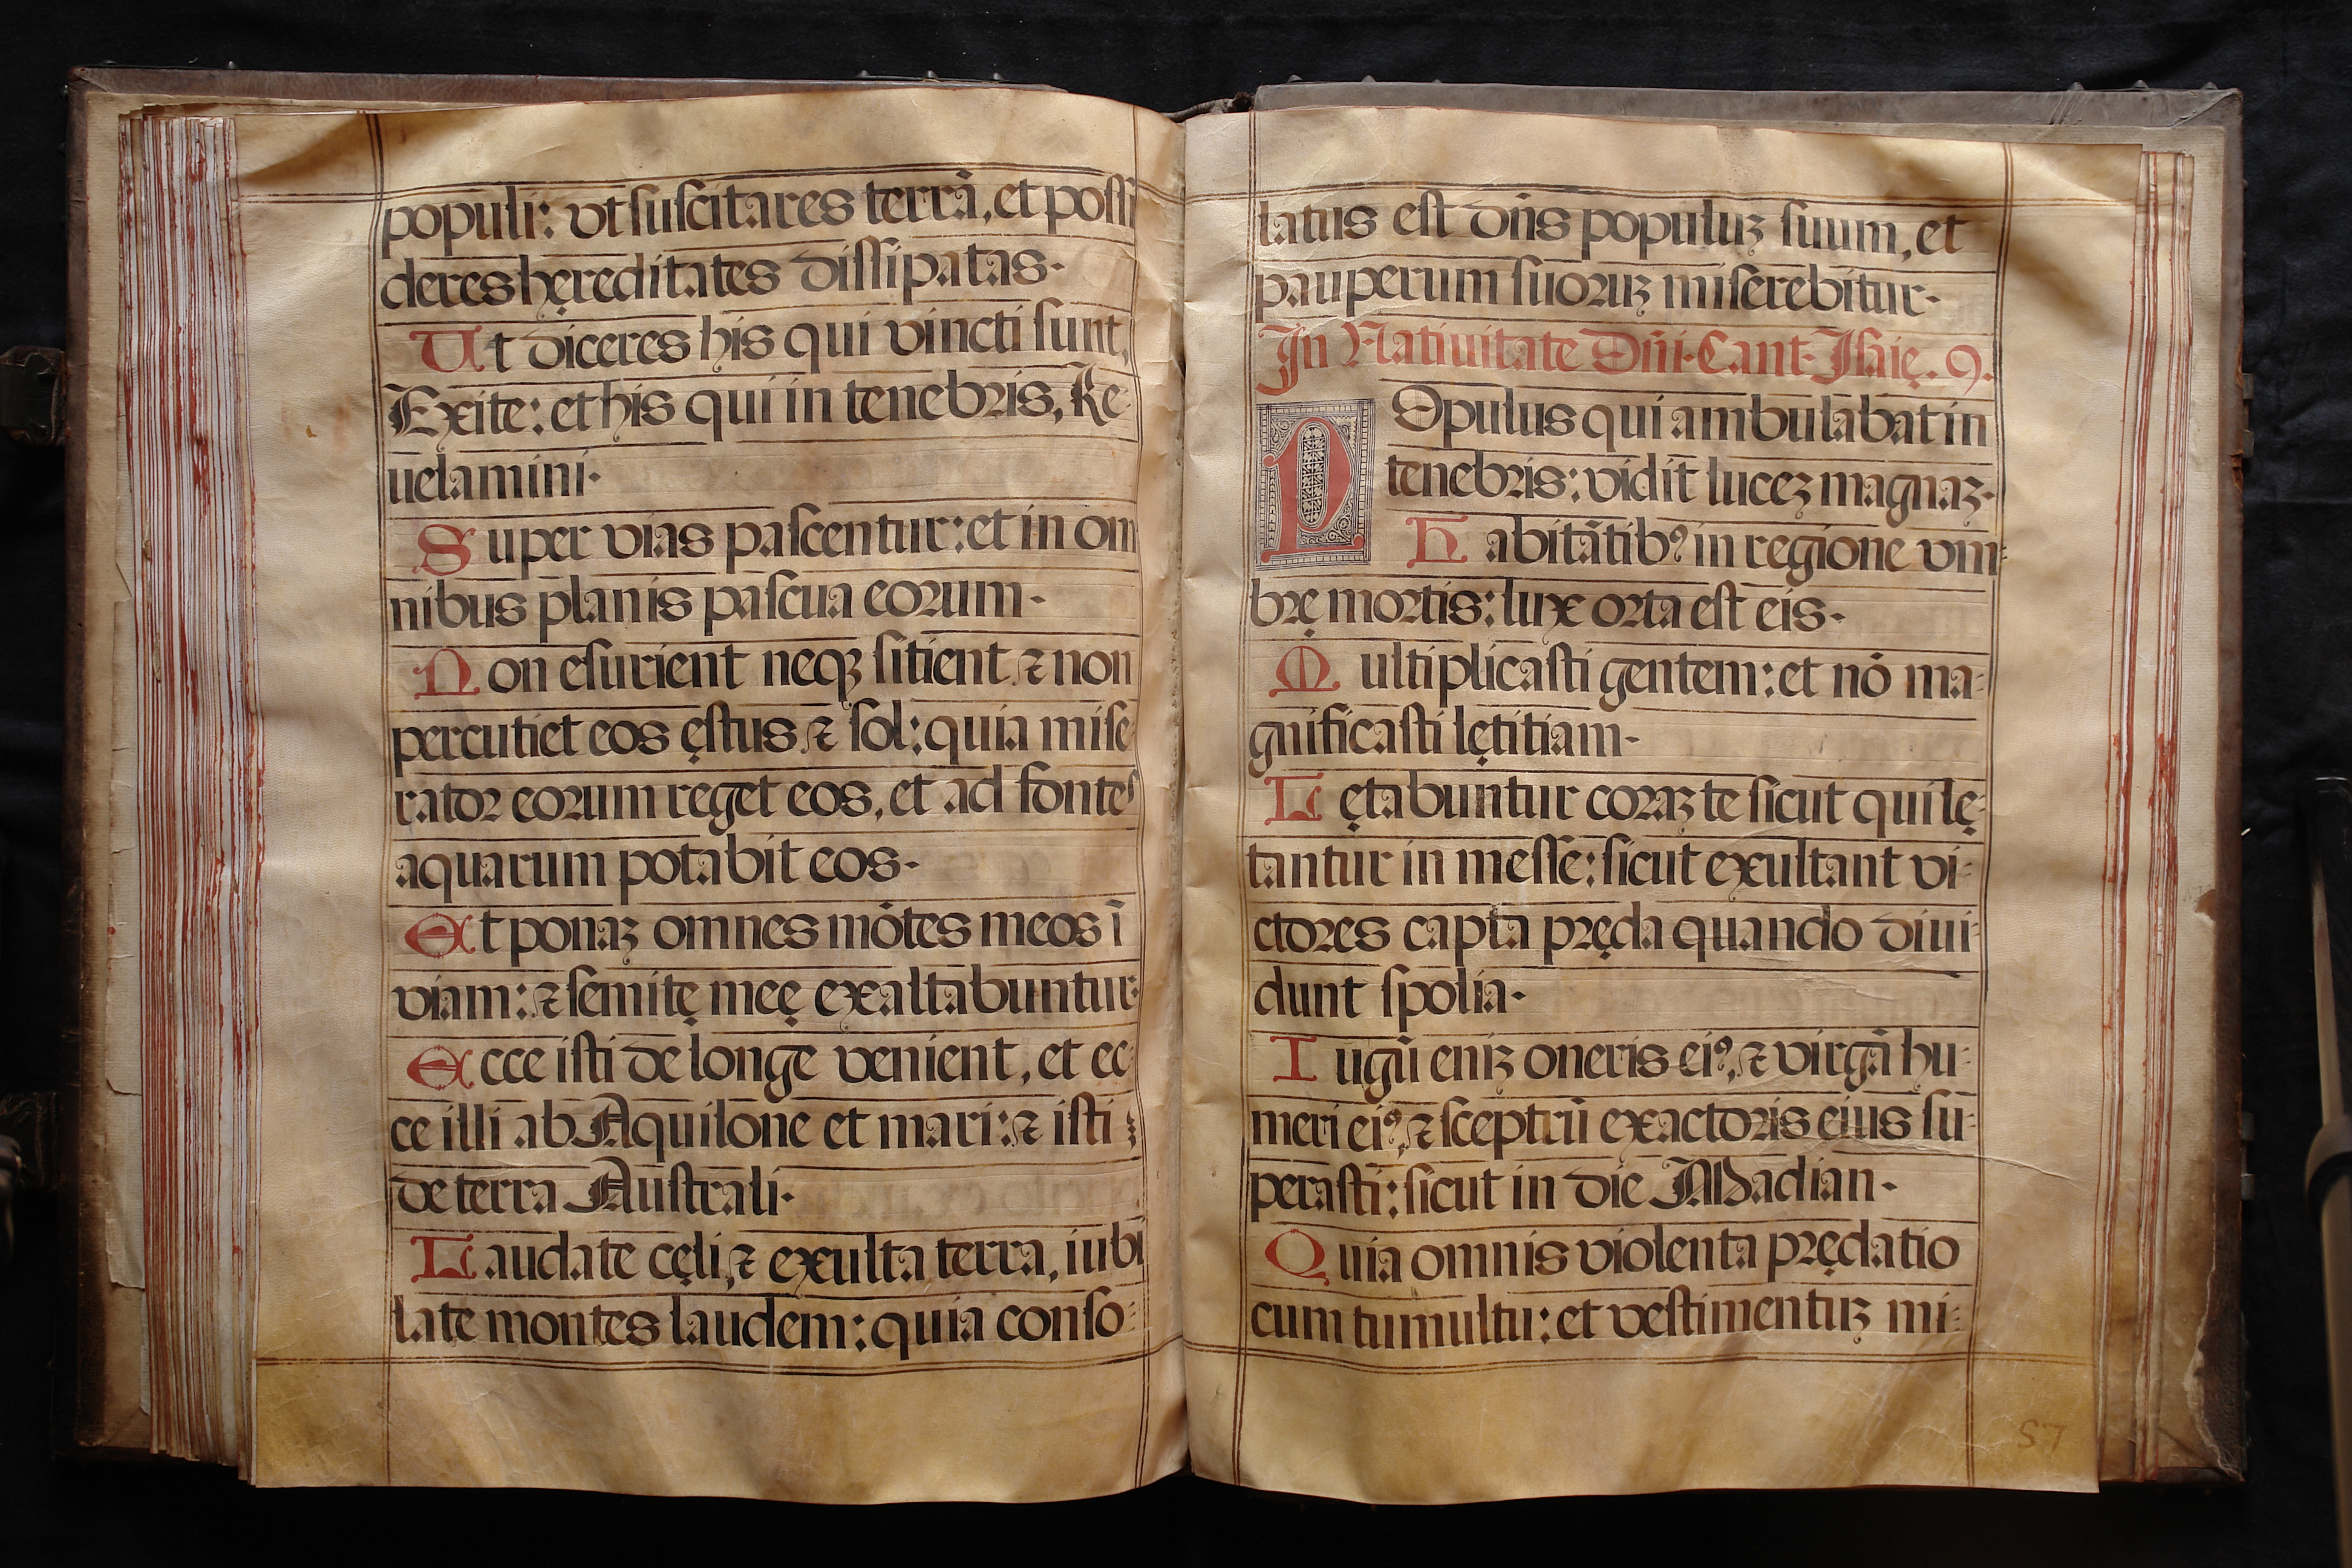 populi: vt suscitares terrā, et possi
deres hęreditates dissipatas.
Ut diceres his qui vincti sunt,
Exite: et his qui in tenebris, Re
uelamini.
Super vias pascentur: et in om
nibus planis pascua eorum.
Non esurient neqȝ sitient ⁊ non
percutiet eos ęstus ⁊ sol: quia mise
rator eorum reget eos, et ad fontes
aquarum potabit eos.
Et ponaȝ omnes mōtes meos ī
viam: ⁊ semitę meę exaltabuntur.
Ecce isti de longe venient, et ec
ce illi ab Aquilone et mari: ⁊ isti
de terra Australi.
Laudate cęli, ⁊ exulta terra, iubi
late montes laudem: quia conso-
latus est dn̄s populuȝ suum, et
pauperum suoruȝ miserebitur.
In Natiuitate Dn̄i. Cant. Isaię. 9.
POpulus qui ambulabat in
tenebris: vidit luceȝ magnaȝ.
Habitātibꝰ in regione vm-
brę mortis: lux orta est eis.
Multiplicasti gentem: et nō ma-
gnificasti lętitiam.
Lętabuntur coraȝ te sicut qui lę-
tantur in messe: sicut exultant vi-
ctores capta pręda quando diui-
dunt spolia.
Iugū eniȝ oneris eiꝰ, ⁊ virgā hu-
meri eiꝰ, ⁊ sceptrū exactoris eius su-
perasti: sicut in die Madian.
Quia omnis violenta prędatio
cum tumultu: et vestimentuȝ mi-
57